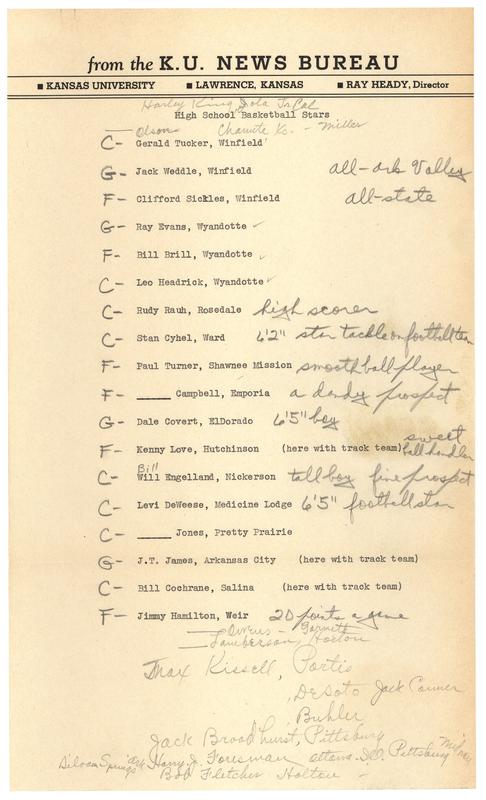 from the K.U. NEWS BUREAU
■ KANSAS UNIVERSITY ■ LAWRENCE, KANSAS ■ RAY HEADY, Director
Harley King, Iola Jr. Col
High School Basketball Stars
Olson Chanute Ks. - Miller
C- Gerald Tucker, Winfield
G- Jack Weddle, Winfield all-ark Valley
F- Clifford Sickles, Winfield all-state
G- Ray Evans, Wyandotte ✓
F- Bill Brill, Wyandotte ✓
C- Leo Headrick, Wyandotte ✓
C- Rudy Rauh, Rosedale high scorer
C- Stan Cyhel, Ward 6'2" star tackle on football team
F- Paul Turner, Shawnee Mission smooth ball player
F- ______ Campbell, Emporia a dandy prospect
G- Dale Covert, ElDorado 6'5" boy
F- Kenny Love, Hutchinson (here with track team) sweet ball handler
Bill
C- Will Engelland, Nickerson tall boy fine prospect
C- Levi DeWeese, Medicine Lodge 6'5" football star
C- ______ Jones, Pretty Prairie
G- J.T. James, Arkansas City (here with track team)
C- Bill Cochrane, Salina (here with track team)
F- Jimmy Hamilton, Weir 20 points a game
Owens - Garnett
Lamberson, Holton
Max Kissell, Portis
DeSoto Jack Conner
Buhler
Jack Broadhurst, Pittsburg
Siloam Springs Ark Harry J. Foresman Pittsburg
Bob Fletcher Holton -